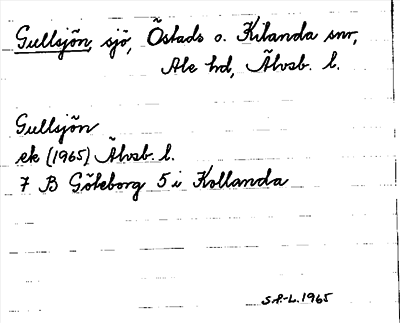 Gullsjön, sjö, Östads o. Kilanda snr,
Ale hd, Älvsb. l.
Gullsjön
ek (1965) Älvsb. l.
7 B Göteborg 5 i Kollanda
S.f.-L. 1965